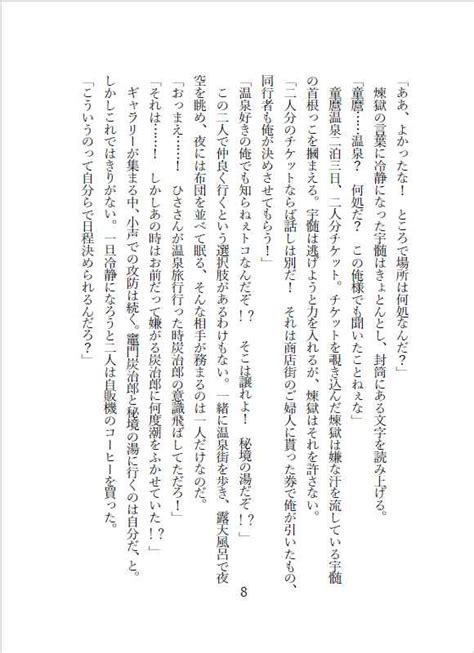 「ああ、よかったな！　ところで場所は何処なんだ？」
煉獄の言葉に冷静になった宇髄はきょとんとし、封筒にある文字を読み上げる。
「童麿……温泉？　何処だ？　この俺様でも聞いたことねぇな」
童麿温泉二泊三日、二人分チケット。チケットを覗き込んだ煉獄は嫌な汗を流している宇髄
の首根っこを掴まえる。宇髄は逃げようと力を入れるが、煉獄はそれを許さない。
「二人分のチケットならば話しは別だ！　それは商店街のご婦人に貰った券で俺が引いたもの、
同行者も俺が決めさせてもらう！」
「温泉好きの俺でも知らねぇトコなんだぞ！？　そこは譲れよ！　秘境の湯だぞ！？」
この二人で仲良く行くという選択肢があるわけもない。一緒に温泉街を歩き、露天風呂で夜
空を眺め、夜には布団を並べて眠る、そんな相手が務まるのは一人だけなのだ。
「おっまえ……！　ひささんが温泉旅行行った時炭治郎の意識飛ばしてただろ！」
「それは……！　しかしあの時はお前だって嫌がる炭治郎に何度潮をふかせていた！？」
ギャラリーが集まる中、小声での攻防は続く。竈門炭治郎と秘境の湯に行くのは自分だ、と。
しかしこれではきりがない。一旦冷静になろうと二人は自販機のコーヒーを買った。
「こういうのって自分らで日程決められるんだろ？」
8